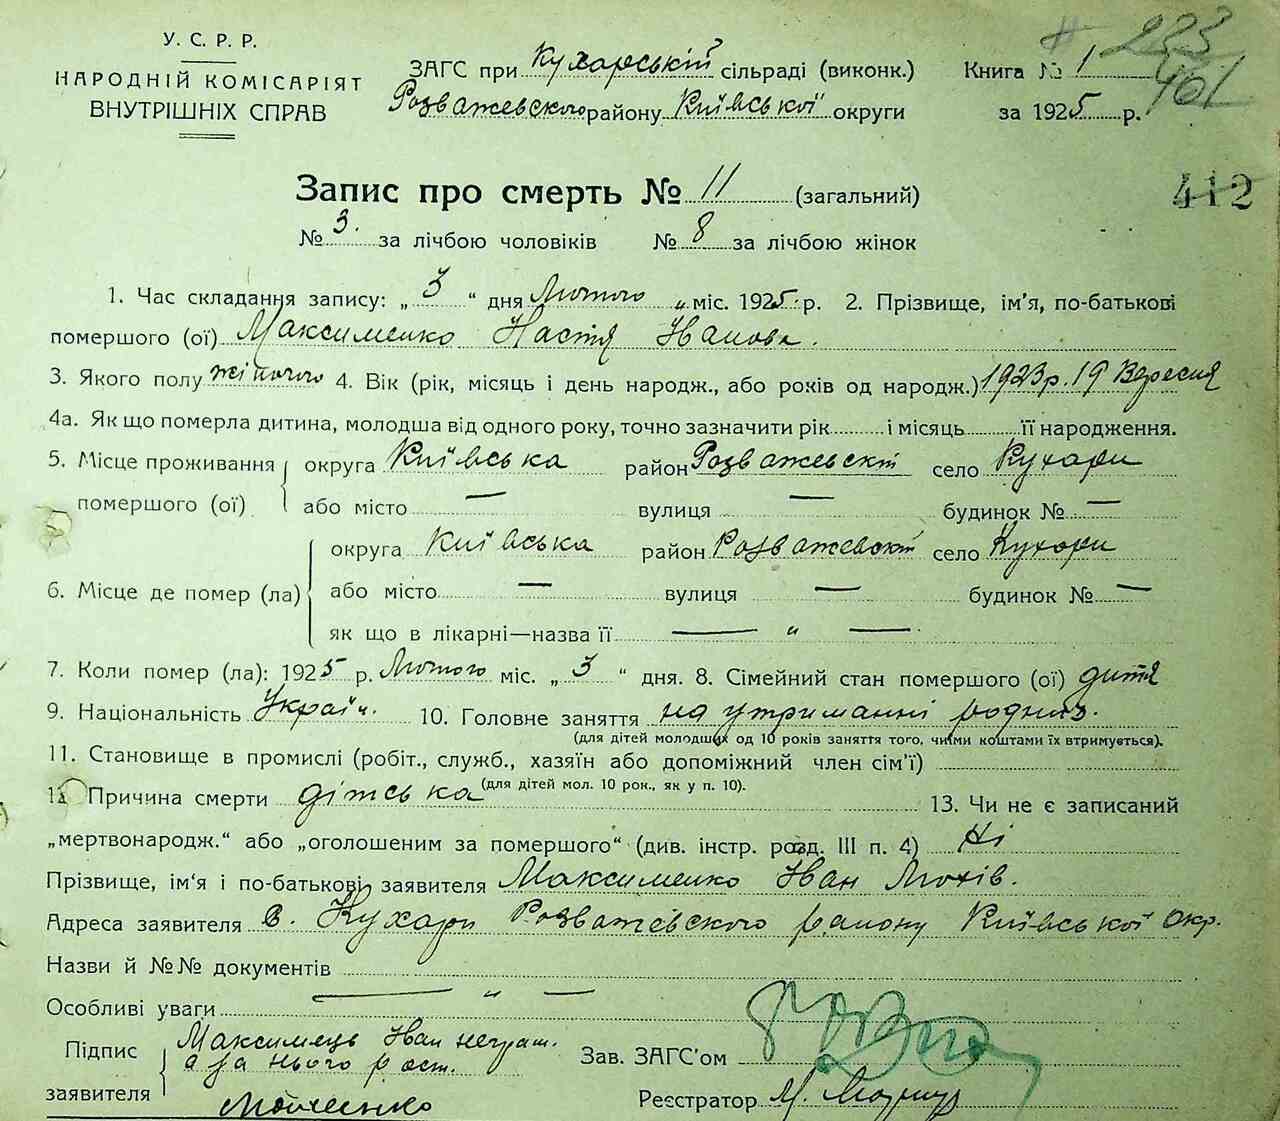 У. С. Р. Р.
НАРОДНІЙ КОМІСАРІЯТ
ВНУТРІШНІХ СПРАВ
ЗАГС при Кухарській сільраді (виконк.)
Розважевского району Київської округи
Книга № 1
за 1925 р.
233
461
412
Запис про смерть № 11 (загальний)
№ 3. за лічбою чоловіків № 8 за лічбою жінок
1. Час складання запису: „ 3 “ дня Лютого „ міс. 1925 р. 2. Прізвище, ім’я, по-батькові
помершого (ої) Максименко Настя Іванова.
3. Якого полу жіночого 4. Вік (рік, місяць і день народж., або років од народж.) 1923 р. 19 Вересня
4а. Як що померла дитина, молодша від одного року, точно зазначити рік і місяць її народження.
5. Місце проживання округа Київська район Розважевскі село Кухари
помершого (ої) або місто — вулиця — будинок № —
округа Київська район Розважевскі село Кухари
6. Місце де помер (ла) або місто — вулиця — будинок № —
як що в лікарні—назва її — „ —
7. Коли помер (ла): 1925 р. Лютого міс. „ 3 “ дня. 8. Сімейний стан помершого (ої) дитя
9. Національність Україн. 10. Головне заняття на утриманні родних.
(для дітей молодших од 10 років заняття того, чиїми коштами їх втримується).
11. Становище в промислі (робіт., служб., хазяїн або допоміжний член сім’ї)
(для дітей мол. 10 рок., як у п. 10).
12 Причина смерти дітська 13. Чи не є записаний
„мертвонародж.“ або „оголошеним за помершого“ (див. інстр. розд. III п. 4) Ні
Прізвище, ім’я і по-батькові заявителя Максименко Іван
Адреса заявителя с. Кухари Розважевского району Київської Окр.
Назви й №№ документів
Особливі уваги — „ —
Підпис Максимець Іван неграм.
а за нього рост.
заявителя
Зав. ЗАГС’ом
Реєстратор М.